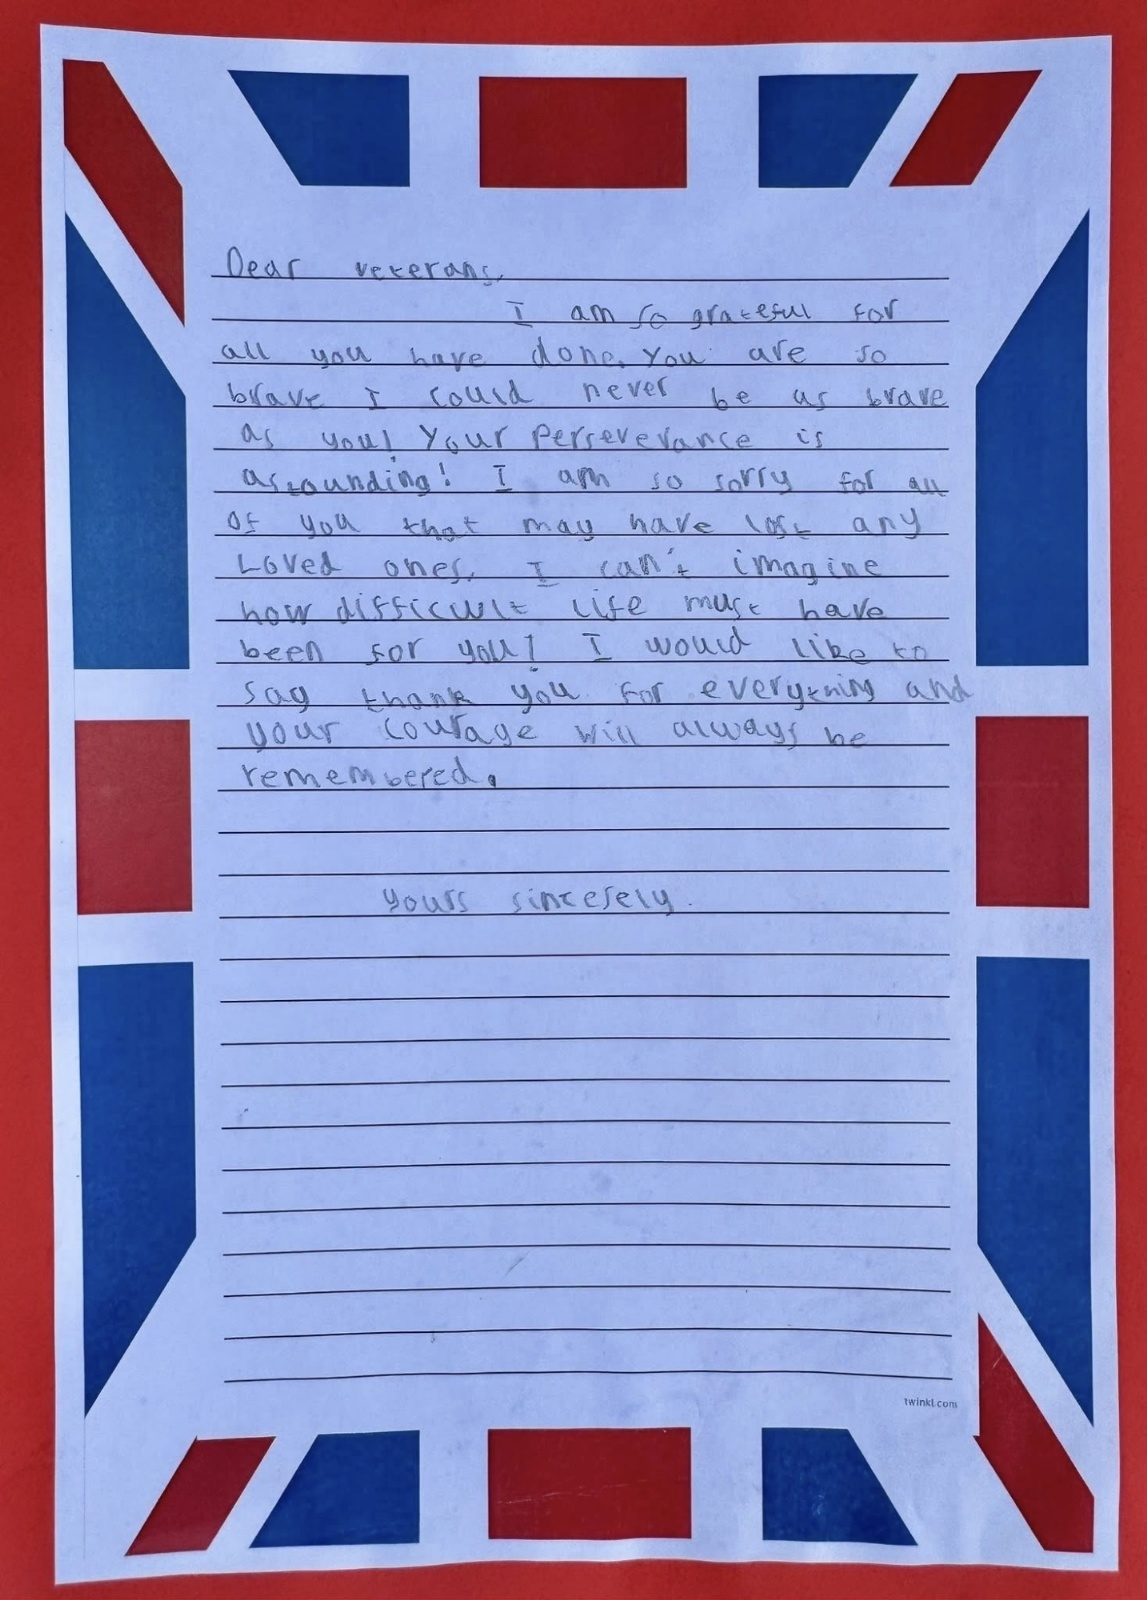 Dear veterans,
I am so grateful for
all you have done. You are so
brave I could never be as brave
as you! Your perseverance is
astounding! I am so sorry for all
of you that may have lost any
Loved ones, I can't imagine
how difficult life must have
been for you! I would like to
say thank you for everything and
your courage will always be
remembered.
yours sincerely.
twinkl.com